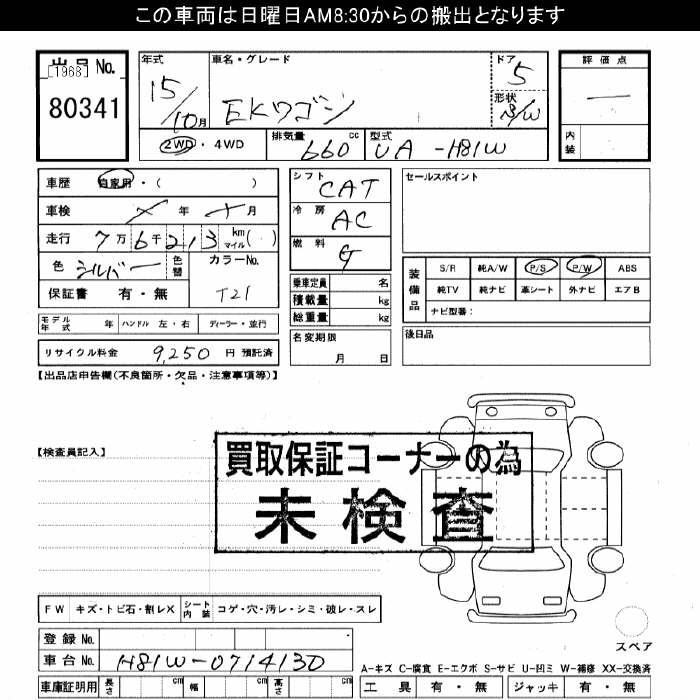 この車両は日曜日AM8:30からの搬出となります
出品No.
[1968]
80341
年式
15/10月
車名・グレード
EKワゴン
ドア
5
形状
S/W
評価点
―
内装
2WD・4WD
排気量 660 cc
型式 UA-H81W
車歴 自家用・( )
車検 年 月
走行 7万6千213 km マイル( )
色 シルバー 色替
カラーNo.
T21
保証書 有・無
シフト CAT
冷房 AC
燃料 G
乗車定員 名
積載量 kg
総重量 kg
セールスポイント
装備品
S/R 純A/W P/S P/W ABS
純TV 純ナビ 革シート 外ナビ エアB
ナビ型番:
モデル年式 年 ハンドル 左・右 ディーラー・並行
リサイクル料金 9,250 円 預託済
名変期限
月 日
後日品
【出品店申告欄(不良箇所・欠品・注意事項等)】
【検査員記入】
買取保証コーナーの為
未検査
FW キズ・トビ石・割レX シート内装 コゲ・穴・汚レ・シミ・破レ・スレ
スペア
登録No.
車台No. H81W-0714130
A-キズ C-腐食 E-エクボ S-サビ U-凹ミ W-補修 XX-交換済
車庫証明用 長さ cm 幅 cm 高さ cm
工具 有・無 ジャッキ 有・無